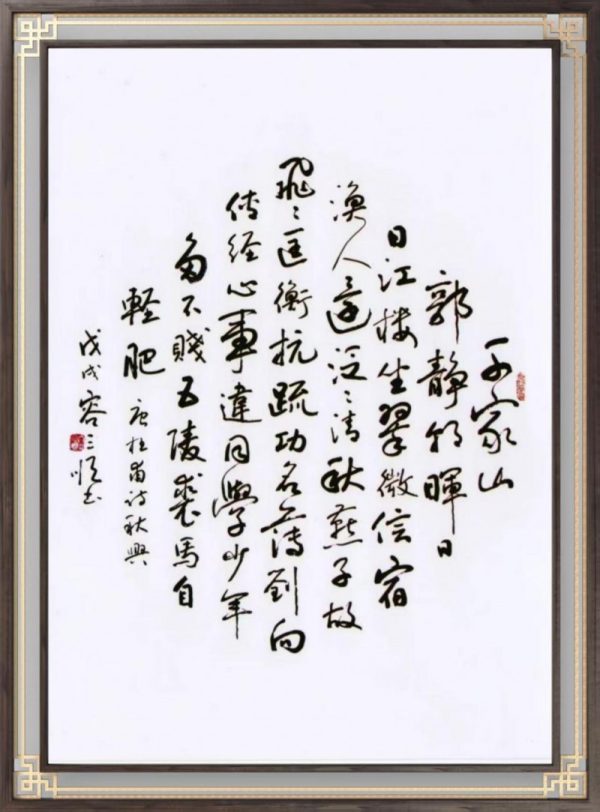 千家山
郭靜朝暉日
日江楼坐翠微信宿
渔人还泛〻清秋燕子故
飛〻匡衡抗疏功名薄刘向
传经心事違同學少年
多不賤五陵裘馬自
軽肥 唐杜甫诗秋興
戊戌容三书